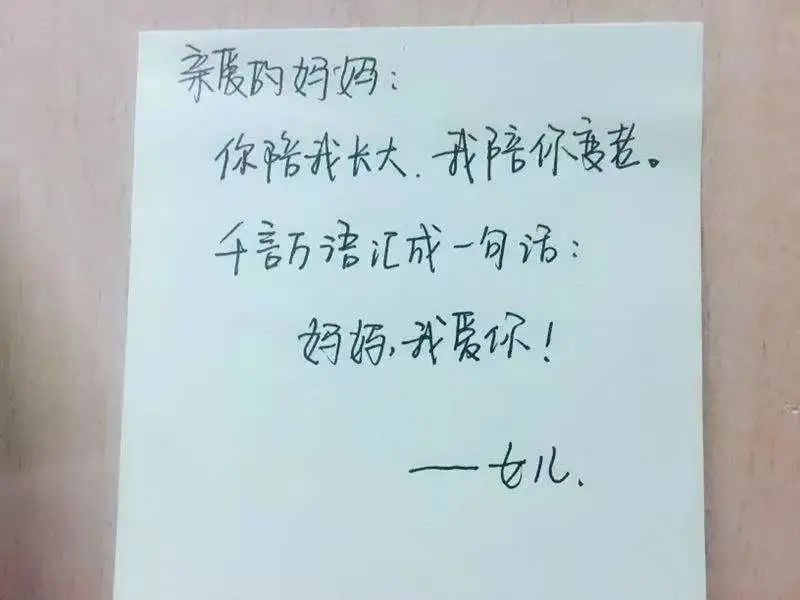 亲爱的妈妈:
你陪我长大.我陪你变老。
千言万语汇成一句话:
妈妈,我爱你!
——女儿.